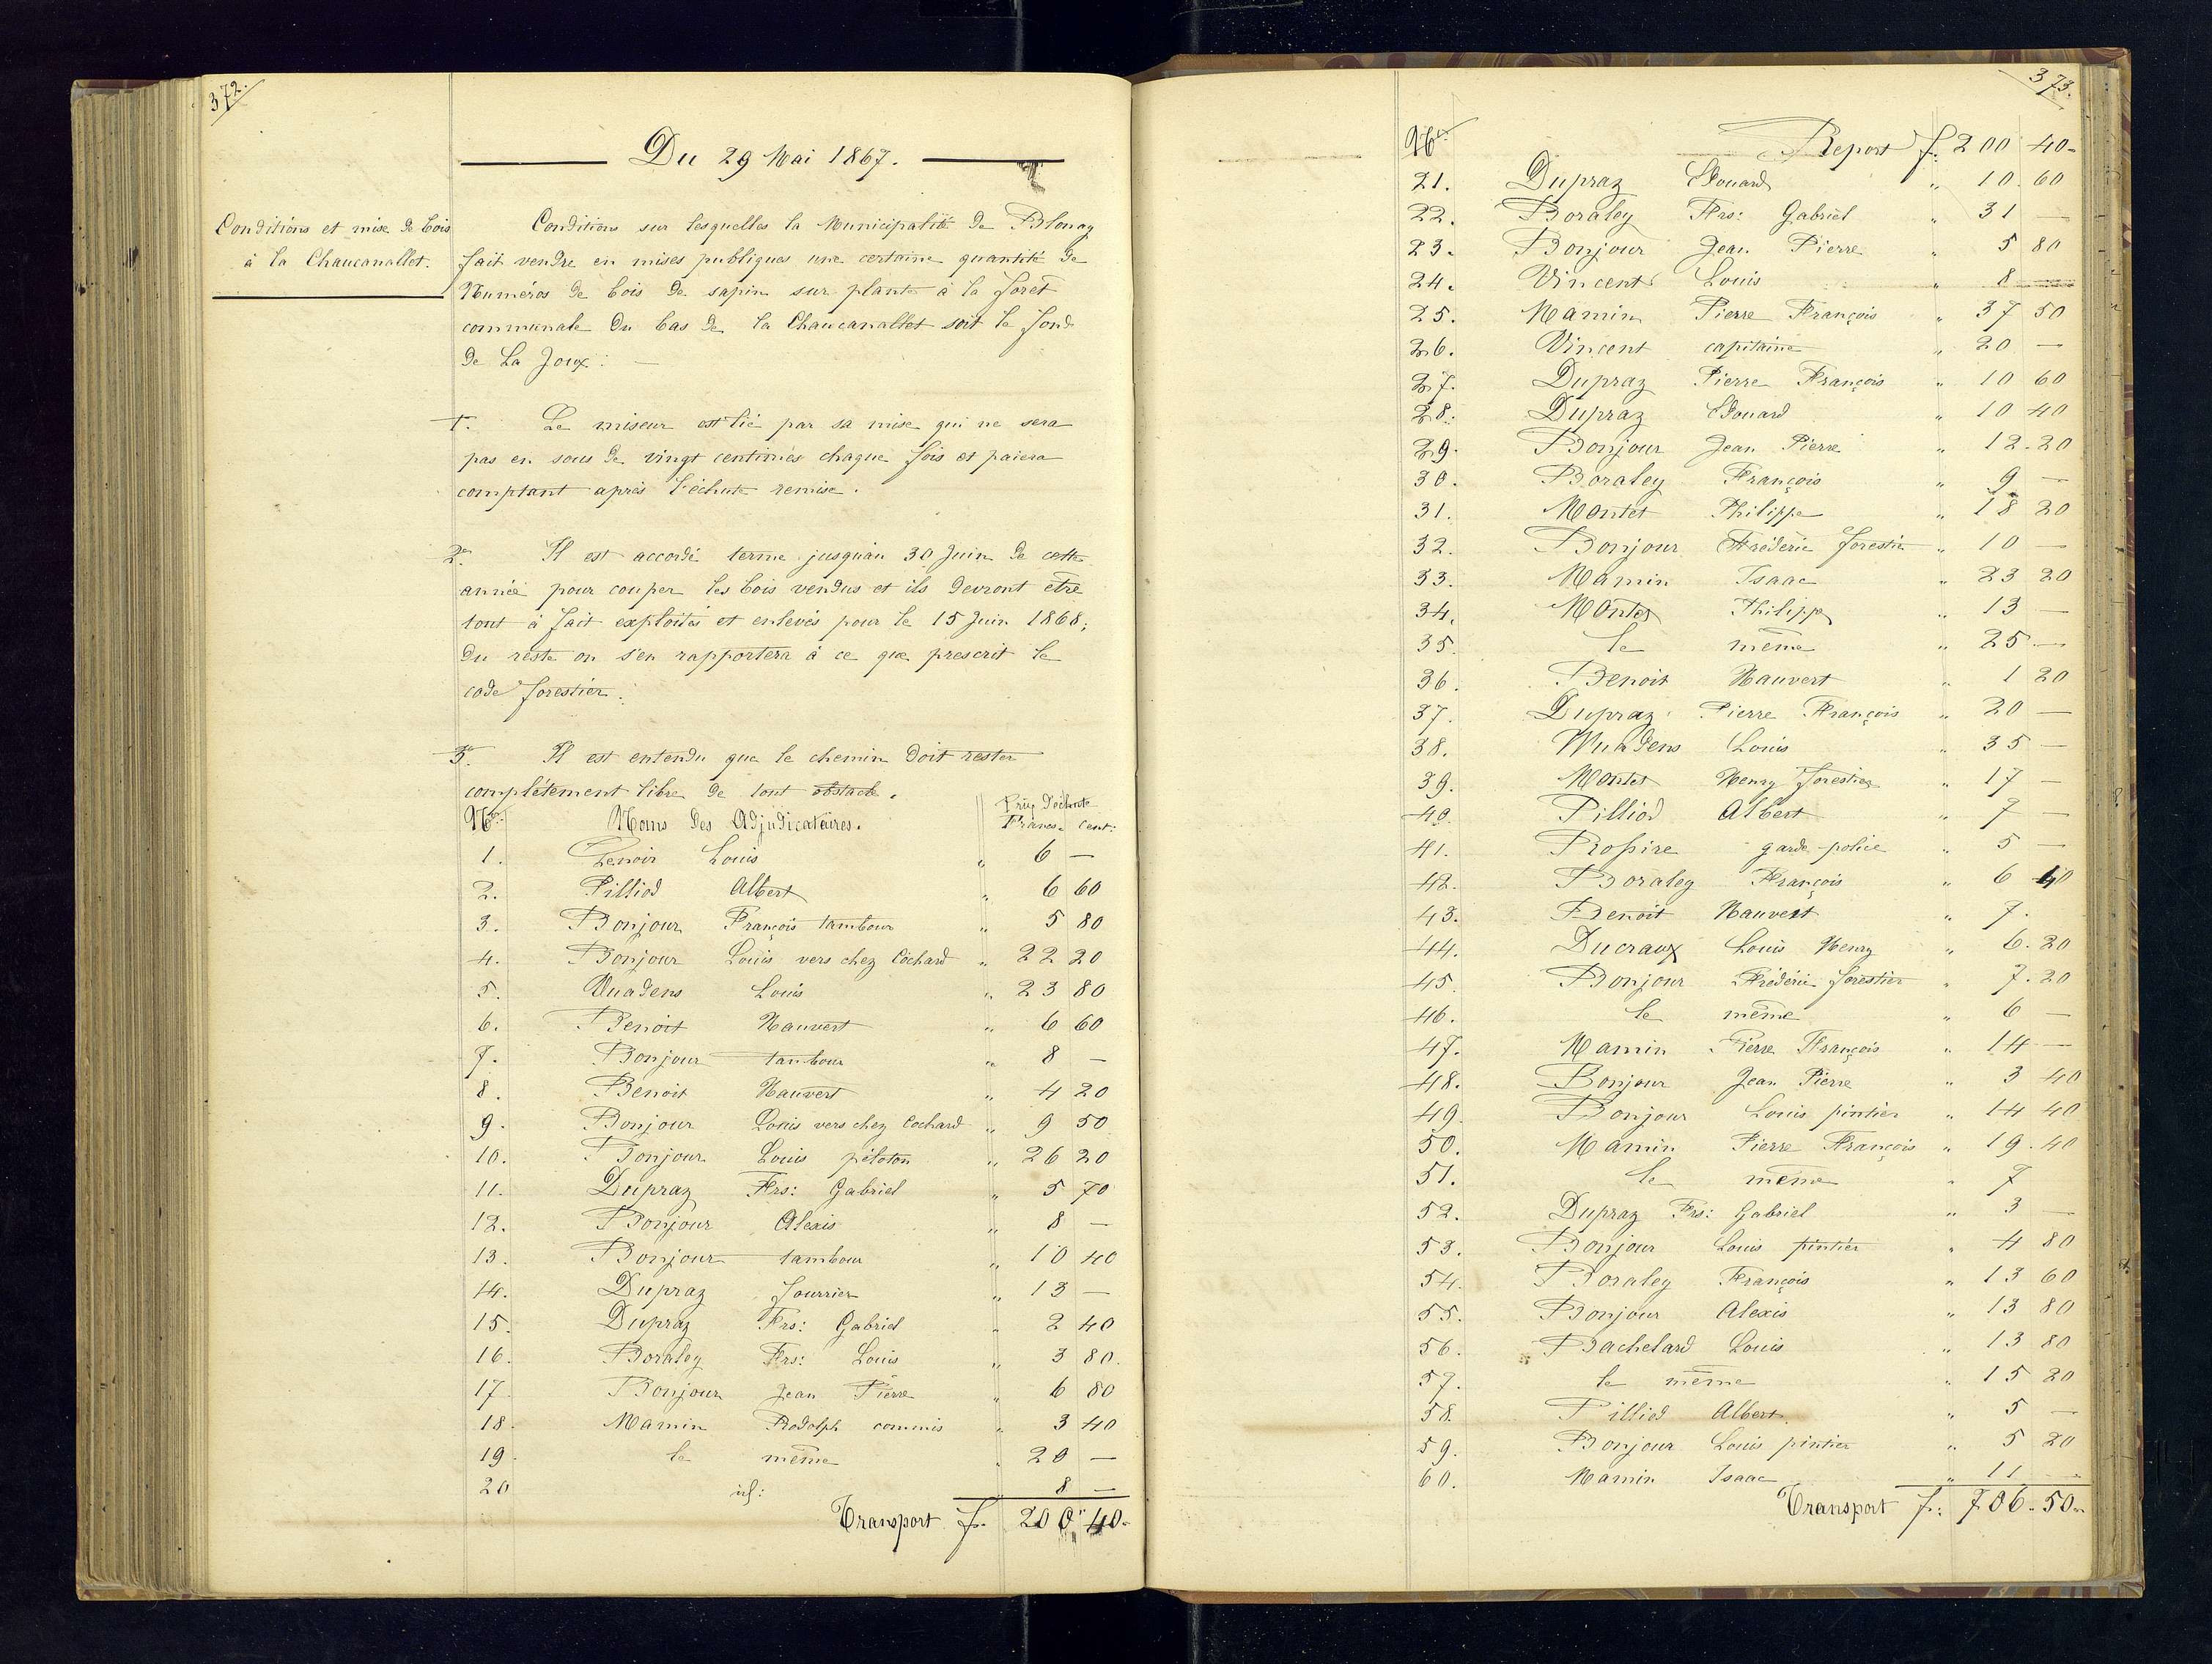 372.
Du 29 Mai 1867.
Conditions et mise de bois
à la Chaucanallet.
Conditions sur lesquelles la Municipalité de Blonay
fait vendre en mises publiques une certaine quantité de
Numéros de bois de sapin sur plante à la forêt
communale du bas de la Chaucanallet soit le fond
de La Joux : —
1. Le miseur est lié par sa mise qui ne sera
pas en sous de vingt centimes chaque fois et paiera
comptant après l'échute remise.
2. Il est accordé terme jusqu'au 30 Juin de cette
année pour couper les bois vendus et ils devront être
tout à fait exploités et enlevés pour le 15 Juin 1868;
du reste on s'en rapportera à ce que prescrit le
code forestier.
3. Il est entendu que le chemin doit rester
complétement libre de tout obstacle.
Nos Noms des Adjudicataires. Prix d'échute
Francs. Cent:
1. Lenoir Louis " 6 —
2. Pilliod Albert " 6 60
3. Bonjour François tambour " 5 80
4. Bonjour Louis vers chez Cochard " 22 20
5. Vuadens Louis " 23 80
6. Benoit Nauvert " 6 60
7. Bonjour tambour " 8 —
8. Benoit Nauvert " 4 20
9. Bonjour Louis vers chez Cochard " 9 50
10. Bonjour Louis péloton " 26 20
11. Dupraz Frs: Gabriel " 5 70
12. Bonjour Alexis " 8 —
13. Bonjour tambour " 10 40
14. Dupraz fourrier " 13 —
15. Dupraz Frs: Gabriel " 2 40
16. Boraley Frs: Louis " 3 80.
17. Bonjour Jean Pierre " 6 80
18. Mamin Rodolph commis " 3 40
19. le même " 20 —
20 id: " 8 —
Transport f. 200" 40.
373.
Nos Report f: 200 40
21. Dupraz Edouard " 10. 60
22. Boraley Frs: Gabriel " 31 —
23. Bonjour Jean Pierre " 5 80
24. Vincent Louis " 8 —
25. Mamin Pierre François " 37 50
26. Vincent capitaine " 20 —
27. Dupraz Pierre François " 10 60
28. Dupraz Edouard " 10 40
29. Bonjour Jean Pierre " 12. 20
30. Boraley François " 9 —
31. Montet Philippe " 18 20
32. Bonjour Fréderic forestier " 10 —
33. Mamin Isaac " 23 20
34. Montet Philippe " 13 —
35. le même " 25 —
36. Benoit Nauvert " 1 20
37. Dupraz Pierre François " 20 —
38. Wuadens Louis " 35 —
39. Montet Henry forestier " 17 —
40. Pilliod Albert " 7 —
41. Rossire garde-police " 5 —
42. Boraley François " 6 40
43. Benoit Nauvert " 7.
44. Ducraux Louis Henry " 6. 20
45. Bonjour Fréderic forestier " 7. 20
46. le même " 6 —
47. Mamin Pierre François " 14 —
48. Bonjour Jean Pierre " 3 40
49. Bonjour Louis pintier " 14 40
50. Mamin Pierre François " 19. 40
51. le même " 7
52. Dupraz Frs: Gabriel " 3 —
53. Bonjour Louis pintier " 4 80
54. Boraley François " 13 60
55. Bonjour Alexis " 13 80
56. Bachelard Louis " 13 80
57. le même " 15 20
58. Pilliod Albert " 5 —
59. Bonjour Louis pintier " 5 20
60. Mamin Isaac " 11 —
Transport f: 706. 50.